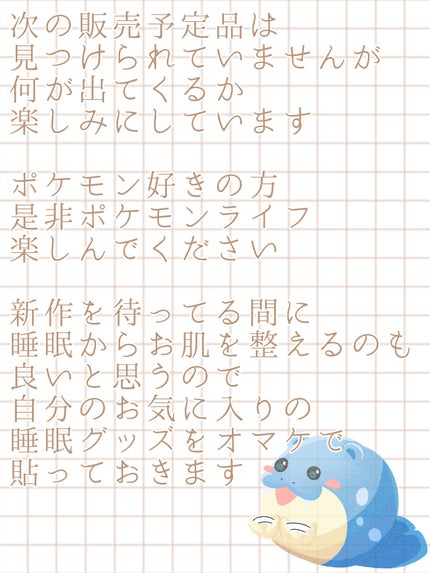 次の販売予定品は
見つけられていませんが
何が出てくるか
楽しみにしています
ポケモン好きの方
是非ポケモンライフ
楽しんでください
新作を待ってる間に
睡眠からお肌を整えるのも
良いと思うので
自分のお気に入りの
睡眠グッズをオマケで
貼っておきます